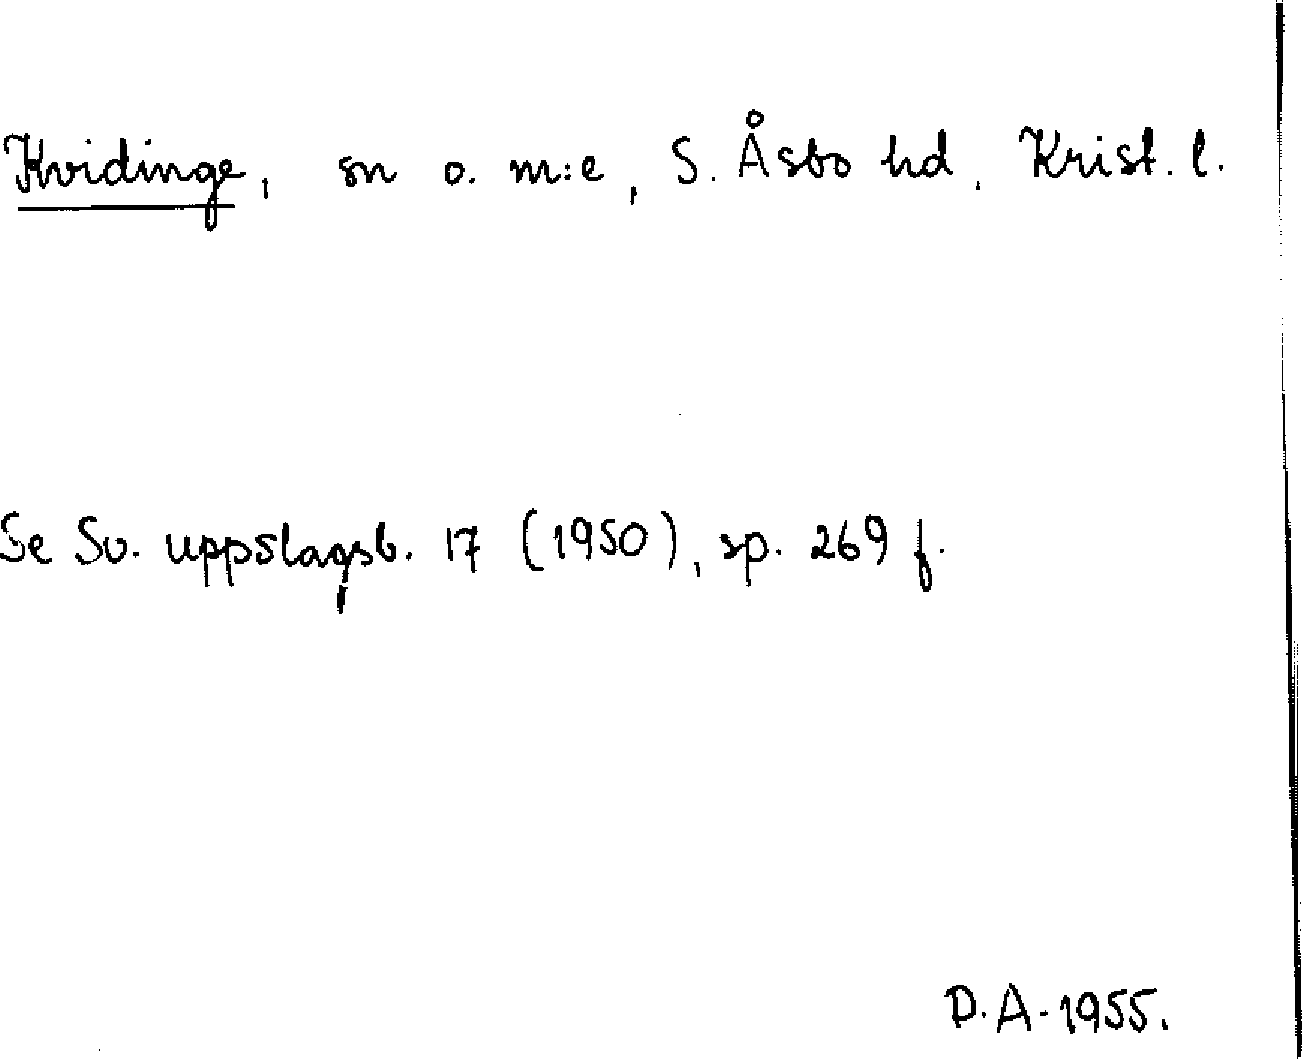 Kvidinge, sn o. m:e, S. Åsbo hd, Krist. l.
Se Sv. uppslagsb. 17 (1950), sp. 269 f.
D.A. 1955.